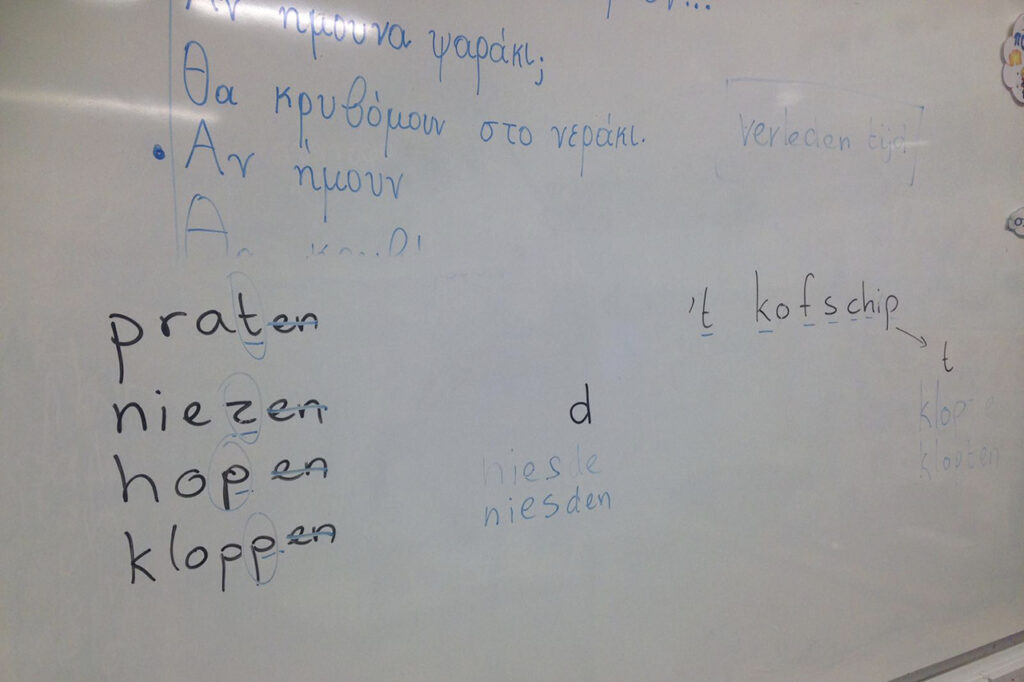 Αν ήμουνα ψαράκι;
Θα κρυβόμουν στο νεράκι.
• Αν ήμουν
verleden tijd
praten
niezen
hoppen
kloppen
't kofschip
t
d
niesde
niesden
klop
klopten